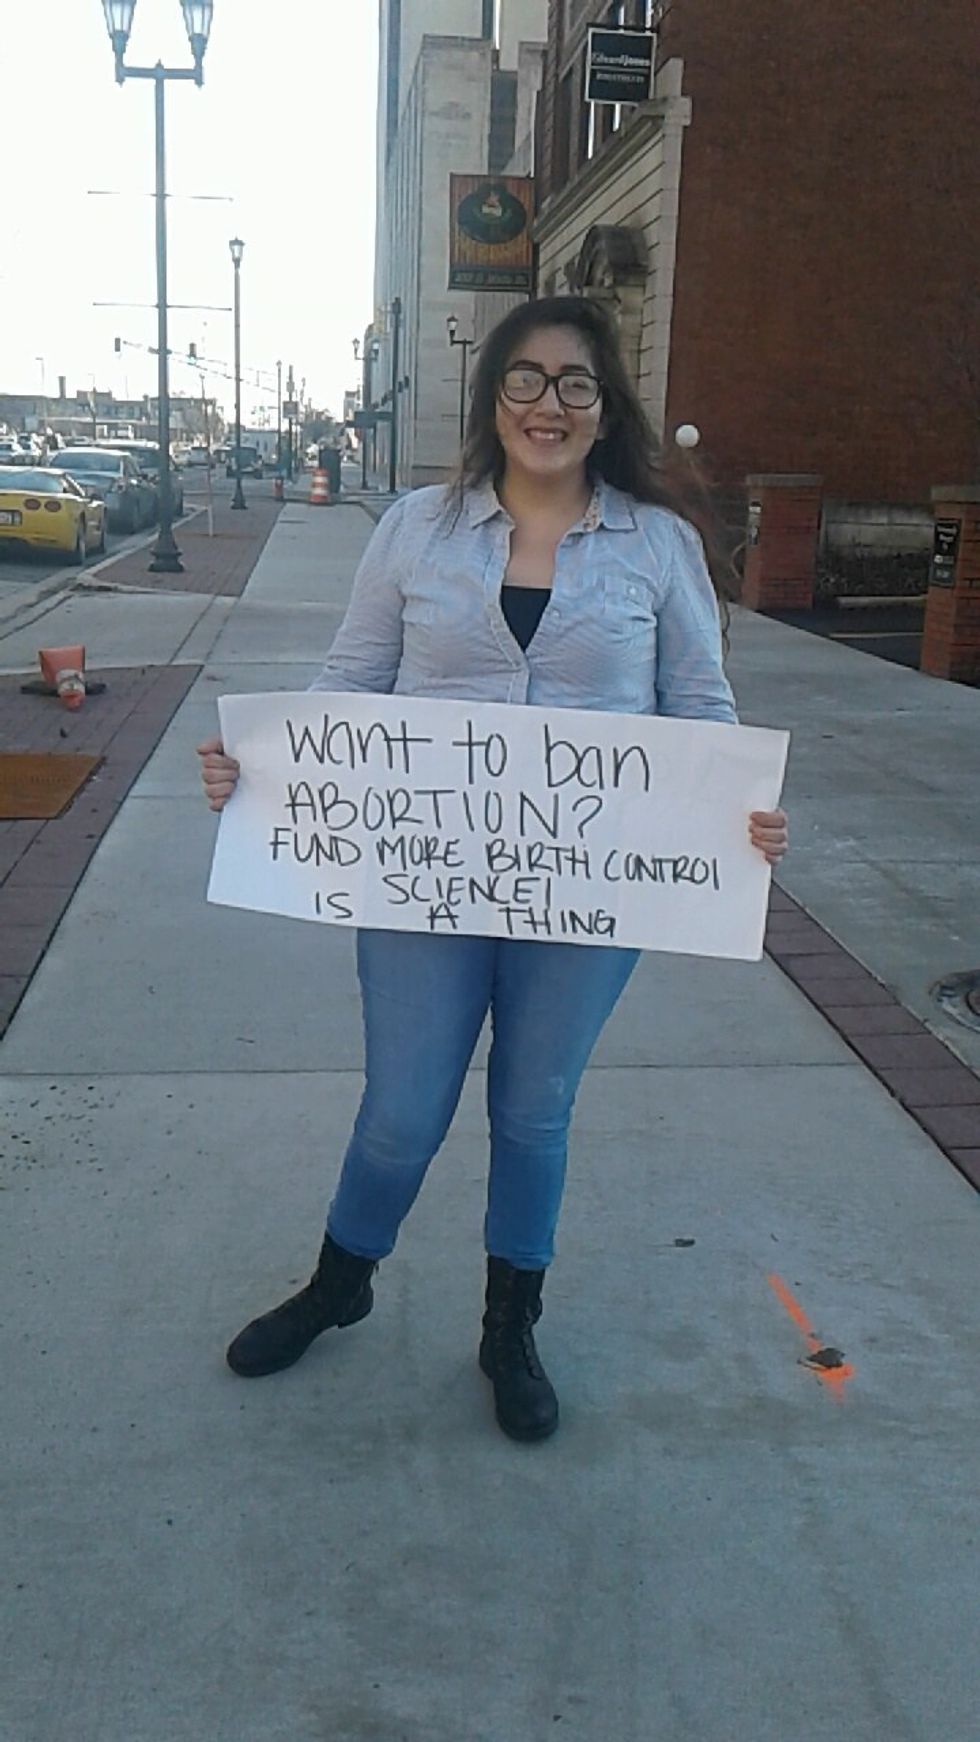 Edward Jones
Want to ban
ABORTION?
FUND MORE BIRTH CONTROl
SCIENCE!
IS A THING